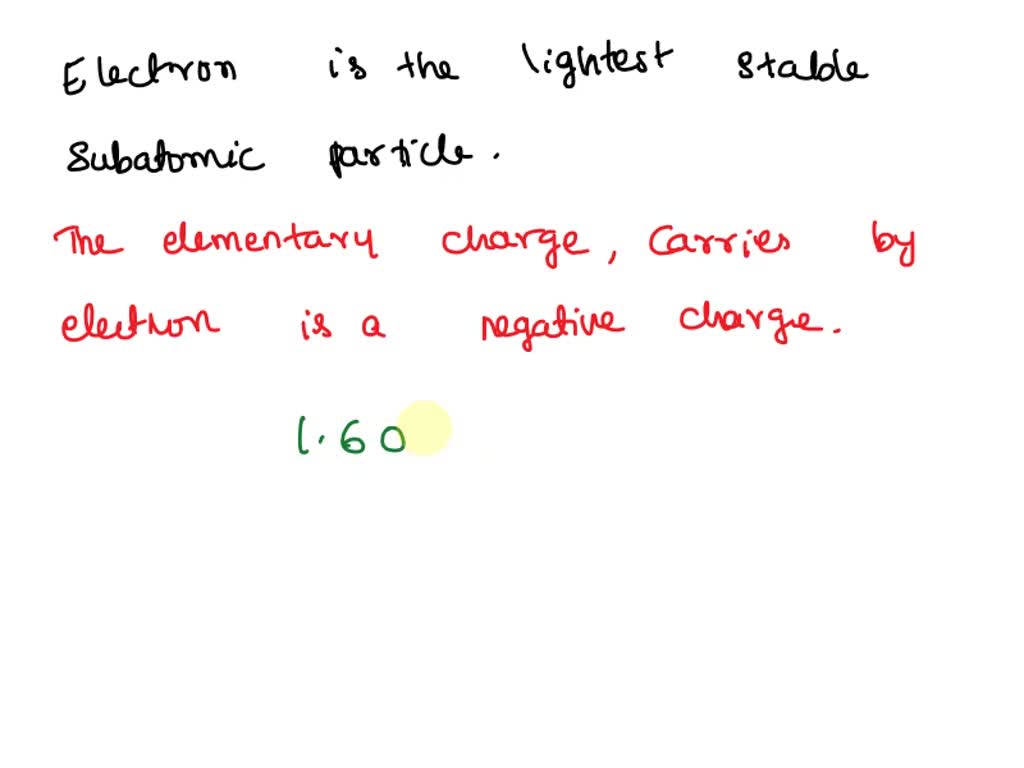 Electron is the lightest stable
subatomic particle.
The elementary charge, carries by
electron is a negative charge.
1.60